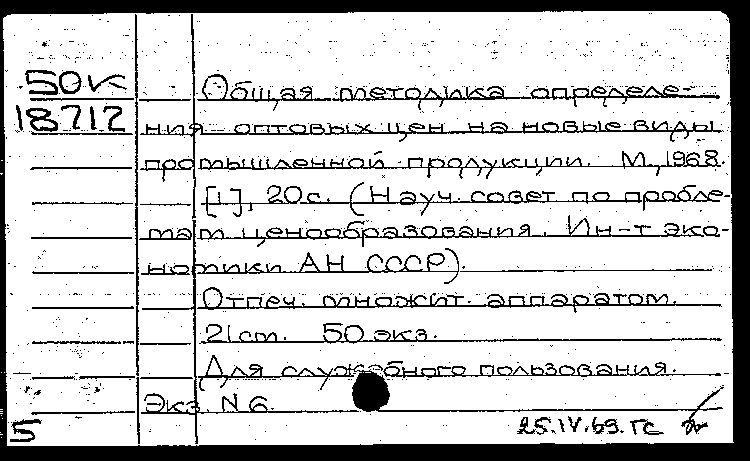 50к Общая методика определе-
18712 ния оптовых цен на новые виды
промышленной продукции. М., 1968.
[1], 20 с. (Науч. совет по пробле-
мам ценообразования. Ин-т эко-
номики АН СССР).
Отпеч. множит. аппаратом.
21 см. 50 экз.
Для служебного пользования.
Экз. N 6.
5 25.IV.69. ГС